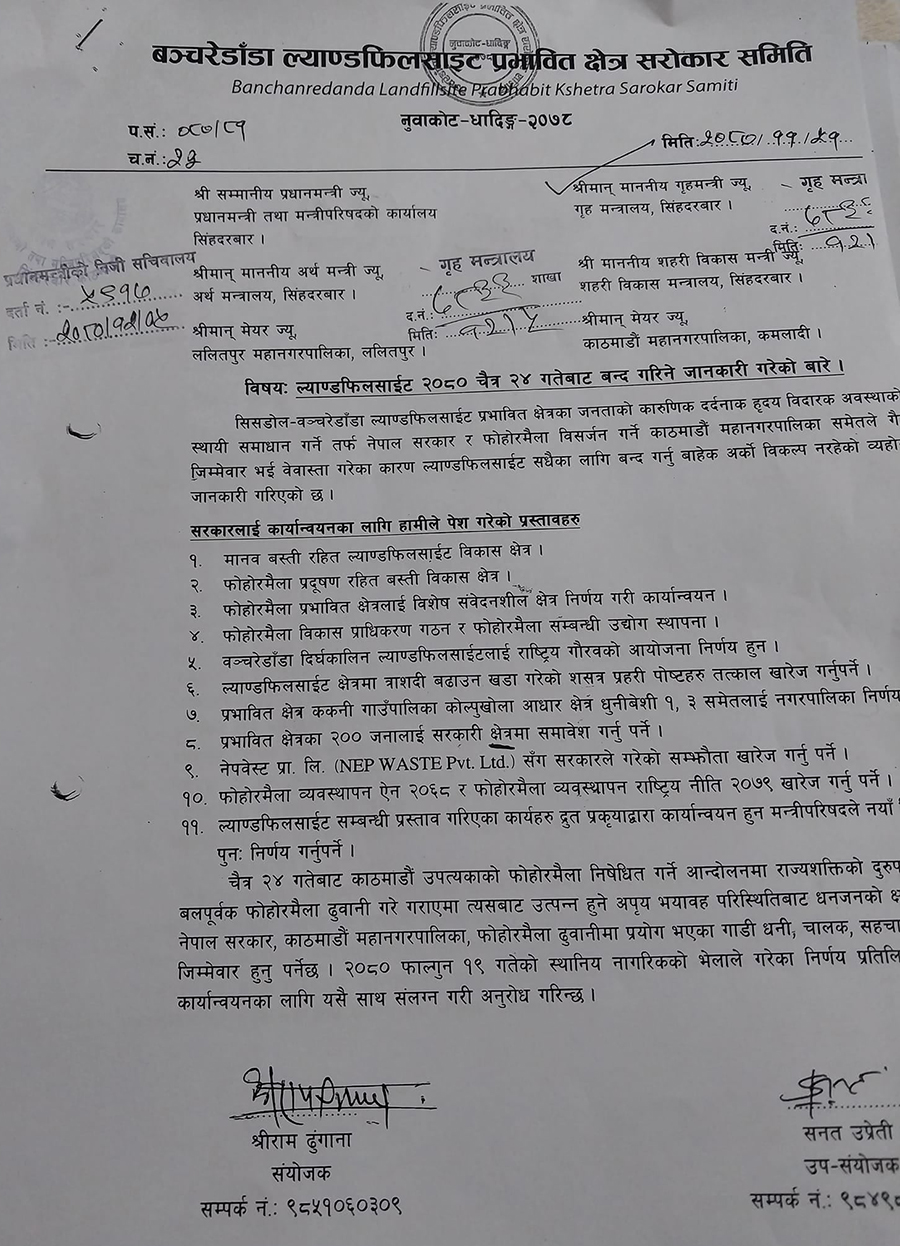 बञ्चरेडाँडा ल्याण्डफिलसाइट प्रभावित क्षेत्र सरोकार समिति
Banchanredanda Landfillsite Prabhabit Kshetra Sarokar Samiti
नुवाकोट-धादिङ्ग-२०७८
नुवाकोट-धादिङ्ग
प.सं.: ०८०/८१
च.नं.: २३
मिति: २०८०/११/२१
श्री सम्मानीय प्रधानमन्त्री ज्यू,
प्रधानमन्त्री तथा मन्त्रीपरिषदको कार्यालय
सिंहदरबार ।
श्रीमान् माननीय गृहमन्त्री ज्यू,
गृह मन्त्रालय, सिंहदरबार ।
गृह मन्त्रा
द.नं.:
मिति:
प्रधानमन्त्रीको निजी सचिवालय
दर्ता नं. :-
मिति :-
श्रीमान् माननीय अर्थ मन्त्री ज्यू,
अर्थ मन्त्रालय, सिंहदरबार ।
गृह मन्त्रालय
शाखा
द.नं.:
मिति:
श्री माननीय शहरी विकास मन्त्री ज्यू,
शहरी विकास मन्त्रालय, सिंहदरबार ।
श्रीमान् मेयर ज्यू,
ललितपुर महानगरपालिका, ललितपुर ।
श्रीमान् मेयर ज्यू,
काठमाडौं महानगरपालिका, कमलादी ।
विषय: ल्याण्डफिलसाईट २०८० चैत्र २४ गतेबाट बन्द गरिने जानकारी गरेको बारे ।
सिसडोल-वञ्चरेडाँडा ल्याण्डफिलसाईट प्रभावित क्षेत्रका जनताको कारुणिक दर्दनाक हृदय विदारक अवस्थाको
स्थायी समाधान गर्ने तर्फ नेपाल सरकार र फोहोरमैला विसर्जन गर्ने काठमाडौं महानगरपालिका समेतले गै
जिम्मेवार भई वेवास्ता गरेका कारण ल्याण्डफिलसाईट सधैका लागि बन्द गर्नु बाहेक अर्को विकल्प नरहेको व्यहो
जानकारी गरिएको छ ।
सरकारलाई कार्यान्वयनका लागि हामीले पेश गरेको प्रस्तावहरु
१. मानव बस्ती रहित ल्याण्डफिलसाईट विकास क्षेत्र ।
२. फोहोरमैला प्रदूषण रहित बस्ती विकास क्षेत्र ।
३. फोहोरमैला प्रभावित क्षेत्रलाई विशेष संवेदनशील क्षेत्र निर्णय गरी कार्यान्वयन ।
४. फोहोरमैला विकास प्राधिकरण गठन र फोहोरमैला सम्बन्धी उद्योग स्थापना ।
५. वञ्चरेडाँडा दिर्घकालिन ल्याण्डफिलसाईटलाई राष्ट्रिय गौरवको आयोजना निर्णय हुन ।
६. ल्याण्डफिलसाईट क्षेत्रमा त्राशदी बढाउन खडा गरेको शसत्र प्रहरी पोष्टहरु तत्काल खारेज गर्नुपर्ने ।
७. प्रभावित क्षेत्र ककनी गाउँपालिका कोल्पुखोला आधार क्षेत्र धुनीबेशी १, ३ समेतलाई नगरपालिका निर्णय
८. प्रभावित क्षेत्रका २०० जनालाई सरकारी क्षेत्रमा समावेश गर्नु पर्ने ।
९. नेपवेस्ट प्रा. लि. (NEP WASTE Pvt. Ltd.) सँग सरकारले गरेको सम्झौता खारेज गर्नु पर्ने ।
१०. फोहोरमैला व्यवस्थापन ऐन २०६८ र फोहोरमैला व्यवस्थापन राष्ट्रिय नीति २०७९ खारेज गर्नु पर्ने ।
११. ल्याण्डफिलसाईट सम्बन्धी प्रस्ताव गरिएका कार्यहरु द्रुत प्रकृयाद्वारा कार्यान्वयन हुन मन्त्रीपरिषदले नयाँ
पुन: निर्णय गर्नुपर्ने ।
चैत्र २४ गतेबाट काठमाडौं उपत्यकाको फोहोरमैला निषेधित गर्ने आन्दोलनमा राज्यशक्तिको दुरुप
बलपूर्वक फोहोरमैला ढुवानी गरे गराएमा त्यसबाट उत्पन्न हुने अपृय भयावह परिस्थितिबाट धनजनको क्ष
नेपाल सरकार, काठमाडौं महानगरपालिका, फोहोरमैला ढुवानीमा प्रयोग भएका गाडी धनी, चालक, सहचा
जिम्मेवार हुनु पर्नेछ । २०८० फाल्गुन १९ गतेको स्थानिय नागरिकको भेलाले गरेका निर्णय प्रतिलि
कार्यान्वयनका लागि यसै साथ संलग्न गरी अनुरोध गरिन्छ ।
श्रीराम ढुंगाना
संयोजक
सम्पर्क नं.: ९८५१०६०३०९
सनत उप्रेती
उप-संयोजक
सम्पर्क नं.: ९८४९८